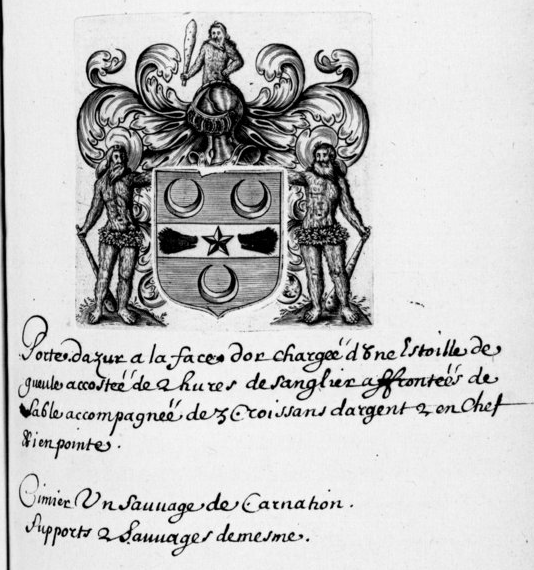 Porte dazur a la face dor chargeé d'une Estoille de
gueule accosteé de 2 hures de sanglier affronteés de
sable accompagneé de 3 Croissans dargent 2 en Chef
& 1 en pointe .
Cimier Un sauuage de Carnation .
Supports 2 Sauuages demesme .